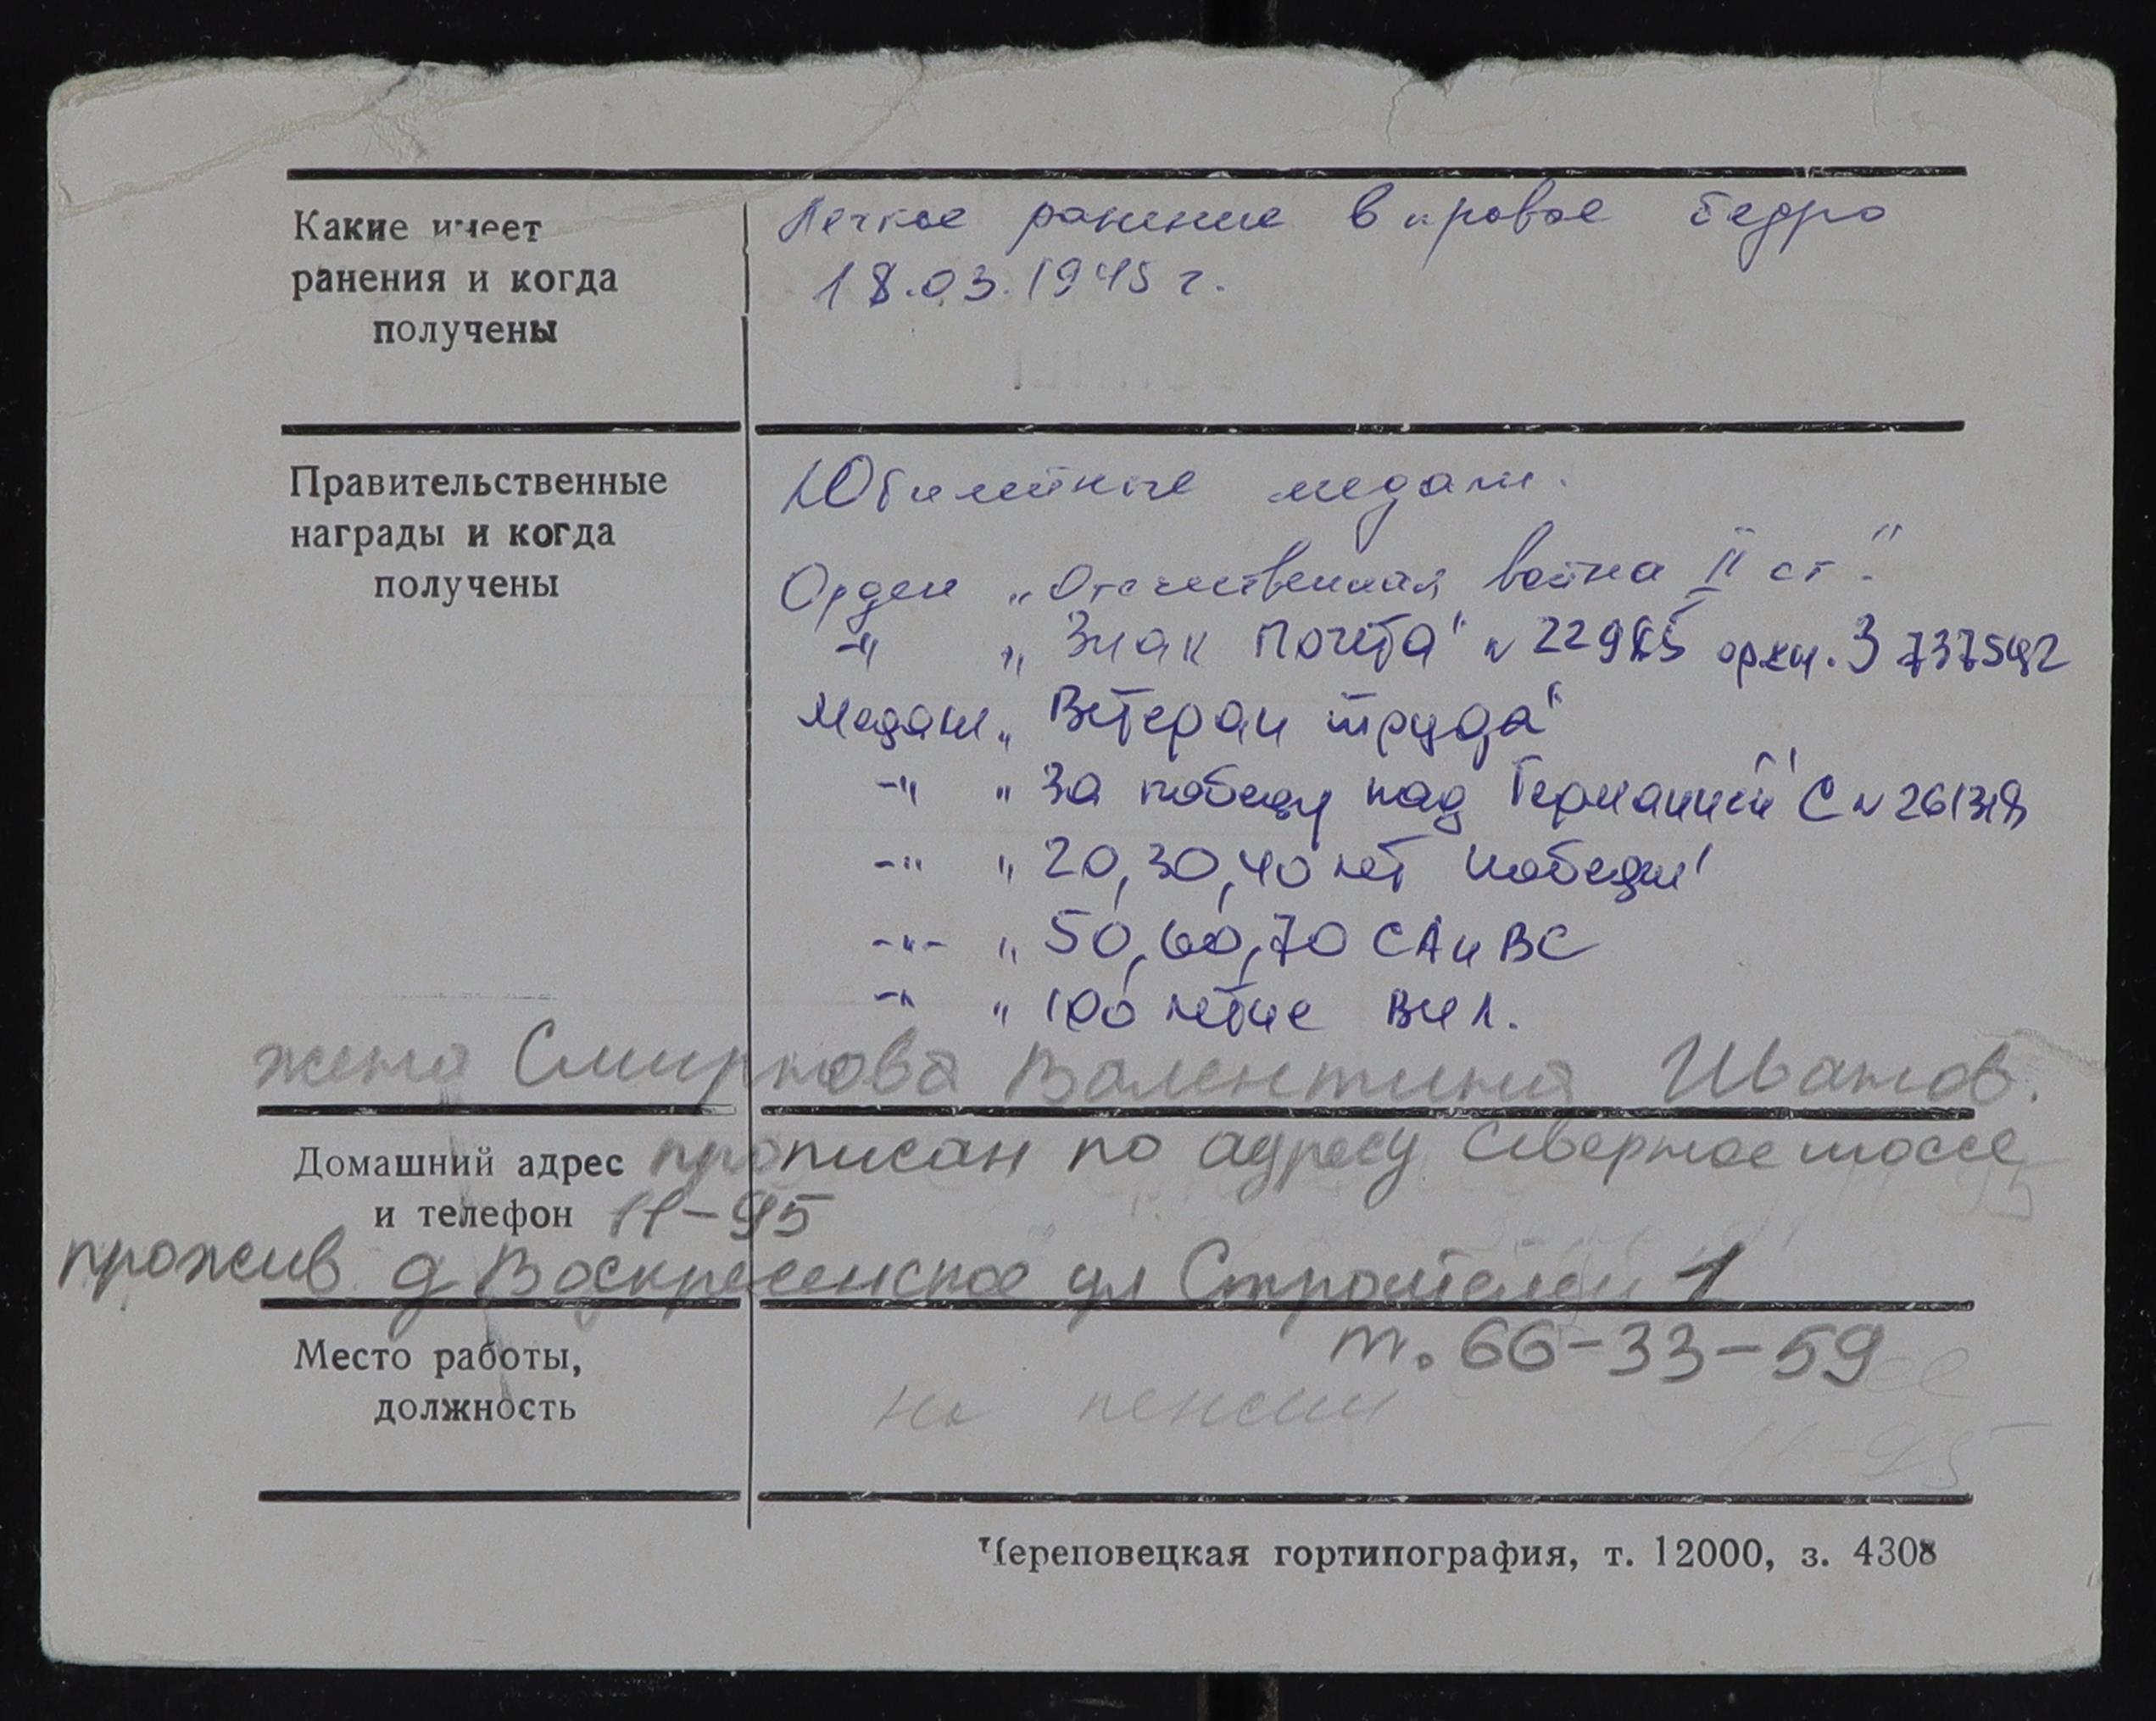 Какие имеет
ранения и когда
получены
Легкое ранение в правое бедро
18.03.1945 г.
Правительственные
награды и когда
получены
Юбилейные медали.
Орден „Отечественная война II ст."
-"- „Знак Почета" N орд.кн. З 737592
Медали „Ветеран труда"
-"- „За победу над Германией" С N
-"- „20, 30, 40 лет победы"
-"- „50, 60, 70 СА и ВС
-"- „100 летие ВИЛ.
жена Смирнова Валентина Иванов.
Домашний адрес
и телефон
прописан по адресу Северное шоссе
11-95
прожив. д Воскресенское ул Строителей 1
т. 66-33-59
Место работы,
должность
на пенсии
Череповецкая гортипография, т. 12000, з. 4308